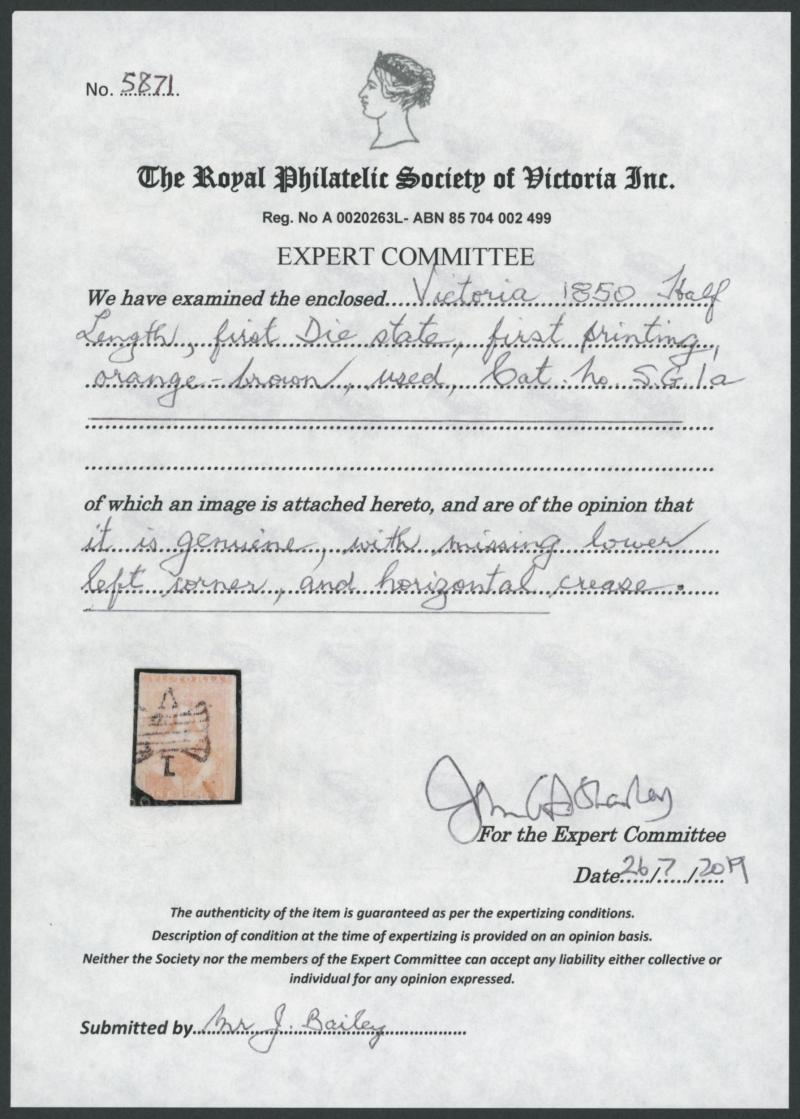 No. 5871
The Royal Philatelic Society of Victoria Inc.
Reg. No A 0020263L- ABN 85 704 002 499
EXPERT COMMITTEE
We have examined the enclosed Victoria 1850 Half
Length, first Die state, first printing,
orange-brown, used, Cat. no S.G.1a
of which an image is attached hereto, and are of the opinion that
it is genuine, with missing lower
left corner, and horizontal crease.
VICTORIA
V
1
John
For the Expert Committee
Date 26/7/2019
The authenticity of the item is guaranteed as per the expertizing conditions.
Description of condition at the time of expertizing is provided on an opinion basis.
Neither the Society nor the members of the Expert Committee can accept any liability either collective or
individual for any opinion expressed.
Submitted by Mr J. Bailey